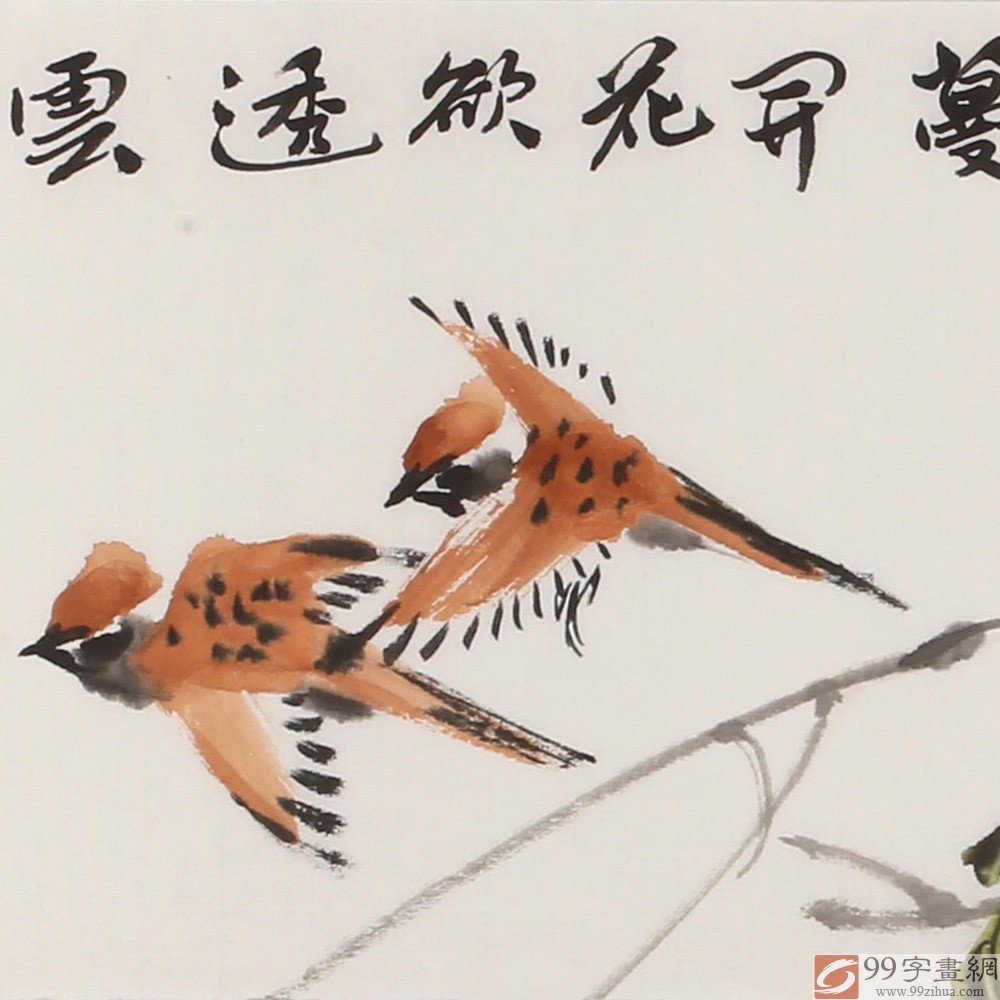 蔓開花欲透雲
99字畫網
www.99zihua.com